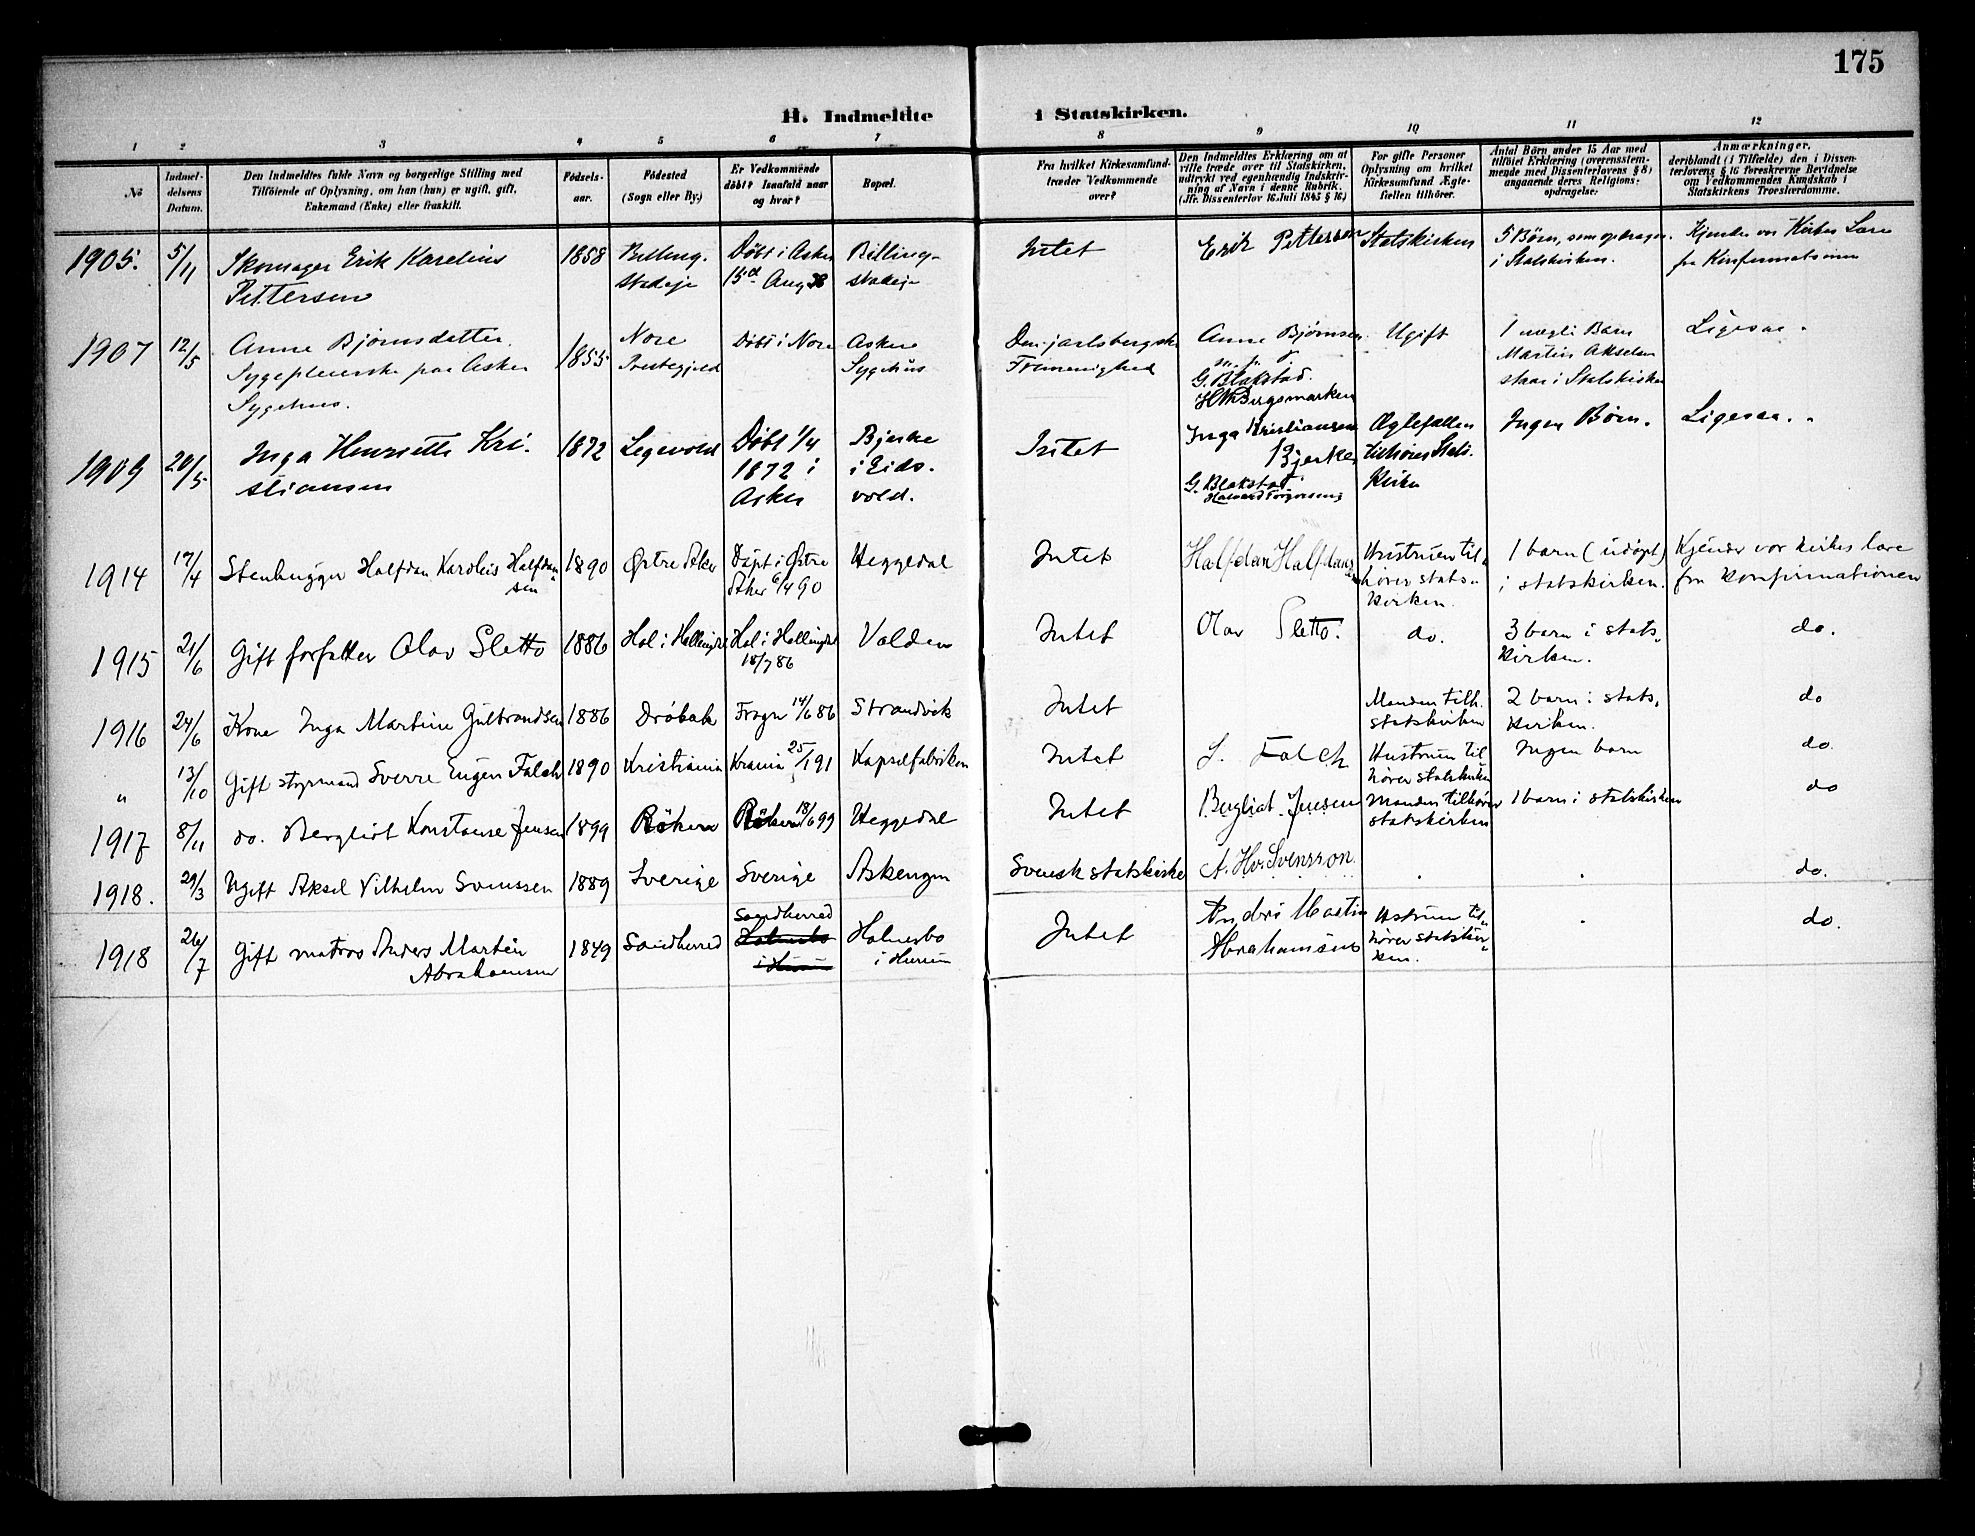 175
H. Indmeldte i Statskirken.
1 2 3 4 5 6 7 8 9 10 11 12
No
Indmel-
delsens
Datum.
Den Indmeldtes fulde Navn og borgerlige Stilling med
Tilföiende af Oplysning, om han (hun) er ugift, gift,
Enkemand (Enke) eller fraskilt.
Födsels-
aar.
Födested
(Sogn eller By.)
Er Vedkommende
döbt? Isaafald naar
og hvor?
Bopæl.
Fra hvilket Kirkesamfund
træder Vedkommende
over?
Den Indmeldtes Erklæring om at
ville træde over til Statskirken,
udtrykt ved egenhændig Indskriv-
ning af Navn i denne Rubrik.
(Jfr. Dissenterlov 16 Juli 1845 § 16)
For gifte Personer
Oplysning om hvilket
Kirkesamfund Ægte-
fællen tilhörer.
Antal Börn under 15 Aar med
tilföiet Erklæring (overensstem-
mende med Dissenterlovens § 8)
angaaende deres Religions-
opdragelse.
Anmærkninger,
deriblandt (i Tilfælde) den i Dissen-
terlovens § 16 foreskrevne Bevidnelse
om Vedkommendes Kundskab i
Statskirkens Troeslærdomme.
1905. 5/11
Skomager Erik Karelius
Pettersen
1858
Billing-
stadeje
Döbt i Asker
15d Aug 58
Billing-
stadeje
Intet
Erik Pettersen
Statskirken
5 Børn, som opdrages
i Statskirken.
Kjender vor Kirkes Lære
fra Konfirmationen
1907 12/5
Anne Bjørnsdatter.
Sygepleierske paa Asker
Sygehus.
1855
Nore
Prestegjeld
Döbt i Nore
Askers
Sygehus
Den jarlsbergske
Frimenighed
Anne Bjørnsen
m. f. P.
G. Blakstad.
Bergsmarken
Ugift
1 uægte Barn
Martin Akselsen
staar i Statskirken
Ligesaa.
1909 20/5
Inga Henriette Kri-
stiansen
1872
Döbt 1/4
1872 i
Asker
Bjerke
i Eids-
vold.
Intet
Inga Kristiansen
Bjerke
G. Blakstad
Ægtefællen
tilhører Stats-
kirken
Ingen Børn.
Ligesaa.
1914 17/4
Stenhugger Halfdan Karolius Halfdan-
sen
1890
Østre Aker
Døpt i Østre
Aker 6/4 90
Heggedal
Intet
Halfdan Halfdansen
Hustruen til-
hører stats-
kirken.
1 barn (udøpt)
i statskirken.
Kjender vor kirkes lære
fra konfirmationen
1915 21/6
Gift forfatter Olav Sletto
1886
Hol i Hallingdal
Hol i Hallingdal
18/7 86
Valden
Intet
Olav Sletto.
do.
3 barn i stats-
kirken.
do.
1916 24/6
Kone Inga Martine Gulbrandsen
1886
Drøbak
Frogn 14/6 86
Strandvik
Intet
Manden tilh.
statskirken
2 barn i stats-
kirken.
do
" 13/10
Gift styrmand Sverre Eugen Falch
1890
Kristiania
Krania 25/1 91
Kapselfabriken
Intet
S. Falch
Hustruen til-
hører statskirken
Ingen barn
do.
1917 8/11
do. Bergliot Konstanse Jensen
1899
Røken
Røken 18/6 99
Heggedal
Intet
Bergliot Jensen
Manden tilhører
statskirken
1 barn i statskirken
do
1918. 29/3
Ugift Aksel Vilhelm Svenssen
1889
Sverige
Sverige
Askengen
Svensk statskirke
A. Hv. Svensson.
do.
1918 26/7
Gift matros Anders Martin
Abrahamsen
1849
Sandherred
Sandherred
Holmsbo
i Hurum
Holmsbo
i Hurum
Intet
Andrs Martin
Abrahamsen
Hustruen til-
hører statskir-
ken.
do.